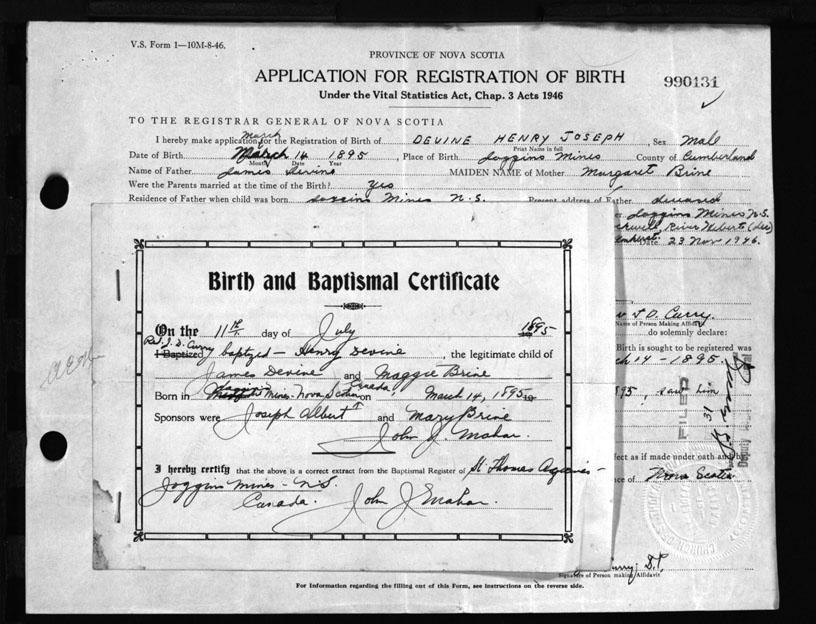 V.S. Form 1—10M-8-46.
PROVINCE OF NOVA SCOTIA
APPLICATION FOR REGISTRATION OF BIRTH
990131
Under the Vital Statistics Act, Chap. 3 Acts 1946
TO THE REGISTRAR GENERAL OF NOVA SCOTIA
March
I hereby make application for the Registration of Birth of DEVINE HENRY JOSEPH, Sex Male
Print Name in full
Date of Birth March 14 1895, Place of Birth Joggins Mines County of Cumberland
Month Date Year
Name of Father James Devine MAIDEN NAME of Mother Margaret Brine
Were the Parents married at the time of the Birth? Yes
Residence of Father when child was born Joggins Mines N.S. Present address of Father deceased
Joggins Mines N.S.
River Hebert (dec)
Amherst Date 23 Nov 1946.
Birth and Baptismal Certificate
On the 11th day of July 1895
Rev. J. D. Curry
I Baptized baptized - Henry Devine, the legitimate child of
James Devine and Maggie Brine
Joggins Canada,
Born in Mines - Nova Scotia on March 14, 1895 19
Sponsors were Joseph Albert and Mary Brine
John J. Mahar.
I hereby certify that the above is a correct extract from the Baptismal Register of St. Thomas Aquinas -
Joggins Mines - N.S.
Canada. John J. Mahar.
J D. Curry.
Name of Person Making Affidavit
do solemnly declare:
Birth is sought to be registered was
ch 14 - 1895.
895, saw him
FILED
31
Deputy
fect as if made under oath and by
nce of Nova Scotia
Curry, D.P.
Signature of Person making Affidavit
For Information regarding the filling out of this Form, see instructions on the reverse side.